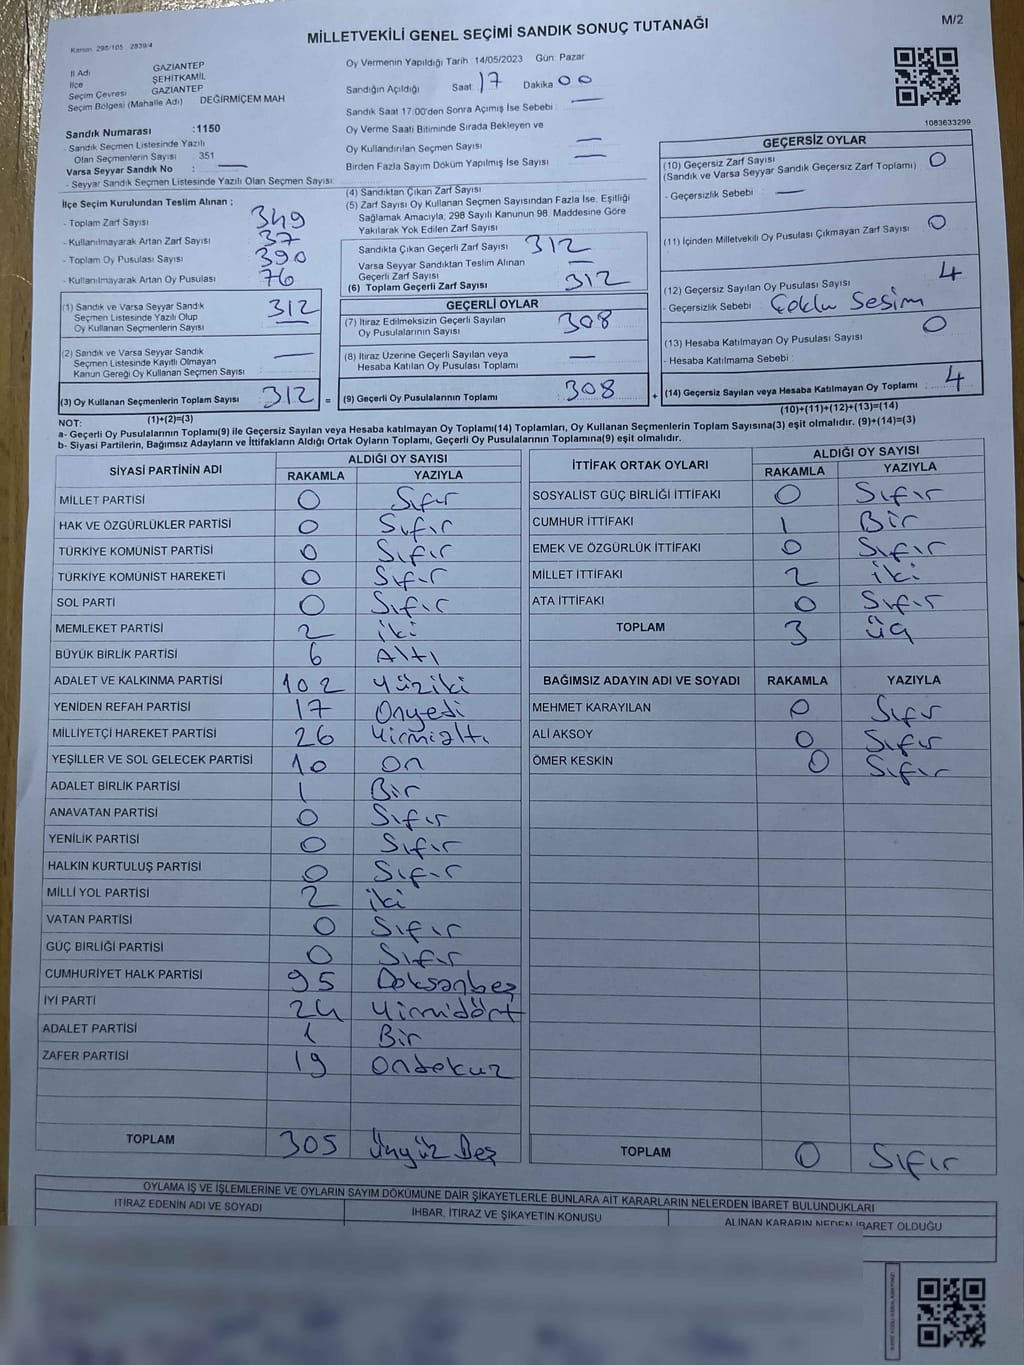 M/2
MİLLETVEKİLİ GENEL SEÇİMİ SANDIK SONUÇ TUTANAĞI
Kanun 298/105 2839/4
İl Adı GAZİANTEP
İlçe ŞEHİTKAMİL
Seçim Çevresi GAZİANTEP
Seçim Bölgesi (Mahalle Adı) DEĞİRMİÇEM MAH
Oy Vermenin Yapıldığı Tarih :14/05/2023 Gün: Pazar
Sandığın Açıldığı Saat 17 Dakika 00
Sandık Saat 17:00'den Sonra Açımış İse Sebebi : —
Oy Verme Saati Bitiminde Sırada Bekleyen ve
Oy Kullandırılan Seçmen Sayısı —
Birden Fazla Sayım Döküm Yapılmış İse Sayısı —
1083633299
Sandık Numarası :1150
- Sandık Seçmen Listesinde Yazılı
Olan Seçmenlerin Sayısı : 351
Varsa Seyyar Sandık No : —
- Seyyar Sandık Seçmen Listesinde Yazılı Olan Seçmen Sayısı:
İlçe Seçim Kurulundan Teslim Alınan ;
- Toplam Zarf Sayısı 349
- Kullanılmayarak Artan Zarf Sayısı 37
- Toplam Oy Pusulası Sayısı 390
- Kullanılmayarak Artan Oy Pusulası 76
(1) Sandık ve Varsa Seyyar Sandık
Seçmen Listesinde Yazılı Olup
Oy Kullanan Seçmenlerin Sayısı 312
(2) Sandık ve Varsa Seyyar Sandık
Seçmen Listesinde Kayıtlı Olmayan
Kanun Gereği Oy Kullanan Seçmen Sayısı : —
(3) Oy Kullanan Seçmenlerin Toplam Sayısı 312 =
(1)+(2)=(3)
(4) Sandıktan Çıkan Zarf Sayısı
(5) Zarf Sayısı Oy Kullanan Seçmen Sayısından Fazla İse, Eşitliği
Sağlamak Amacıyla; 298 Sayılı Kanunun 98. Maddesine Göre
Yakılarak Yok Edilen Zarf Sayısı
Sandıkta Çıkan Geçerli Zarf Sayısı 312
Varsa Seyyar Sandıktan Teslim Alınan
Geçerli Zarf Sayısı —
(6) Toplam Geçerli Zarf Sayısı 312
GEÇERLİ OYLAR
(7) İtiraz Edilmeksizin Geçerli Sayılan
Oy Pusulalarının Sayısı 308
(8) İtiraz Üzerine Geçerli Sayılan veya
Hesaba Katılan Oy Pusulası Toplamı —
(9) Geçerli Oy Pusulalarının Toplamı 308 +
GEÇERSİZ OYLAR
(10) Geçersiz Zarf Sayısı 0
(Sandık ve Varsa Seyyar Sandık Geçersiz Zarf Toplamı)
- Geçersizlik Sebebi : —
(11) İçinden Milletvekili Oy Pusulası Çıkmayan Zarf Sayısı 0
(12) Geçersiz Sayılan Oy Pusulası Sayısı 4
- Geçersizlik Sebebi : Çoklu Seçim
(13) Hesaba Katılmayan Oy Pusulası Sayısı 0
- Hesaba Katılmama Sebebi :
(14) Geçersiz Sayılan veya Hesaba Katılmayan Oy Toplamı 4
(10)+(11)+(12)+(13)=(14)
NOT:
a- Geçerli Oy Pusulalarının Toplamı(9) ile Geçersiz Sayılan veya Hesaba katılmayan Oy Toplamı(14) Toplamları, Oy Kullanan Seçmenlerin Toplam Sayısına(3) eşit olmalıdır. (9)+(14)=(3)
b- Siyasi Partilerin, Bağımsız Adayların ve İttifakların Aldığı Ortak Oyların Toplamı, Geçerli Oy Pusulalarının Toplamına(9) eşit olmalıdır.
SİYASİ PARTİNİN ADI ALDIĞI OY SAYISI
RAKAMLA YAZIYLA
MİLLET PARTİSİ 0 Sıfır
HAK VE ÖZGÜRLÜKLER PARTİSİ 0 Sıfır
TÜRKİYE KOMÜNİST PARTİSİ 0 Sıfır
TÜRKİYE KOMÜNİST HAREKETİ 0 Sıfır
SOL PARTİ 0 Sıfır
MEMLEKET PARTİSİ 2 iki
BÜYÜK BİRLİK PARTİSİ 6 Altı
ADALET VE KALKINMA PARTİSİ 102 Yüziki
YENİDEN REFAH PARTİSİ 17 Onyedi
MİLLİYETÇİ HAREKET PARTİSİ 26 Yirmialtı
YEŞİLLER VE SOL GELECEK PARTİSİ 10 On
ADALET BİRLİK PARTİSİ 1 Bir
ANAVATAN PARTİSİ 0 Sıfır
YENİLİK PARTİSİ 0 Sıfır
HALKIN KURTULUŞ PARTİSİ 0 Sıfır
MİLLİ YOL PARTİSİ 2 iki
VATAN PARTİSİ 0 Sıfır
GÜÇ BİRLİĞİ PARTİSİ 0 Sıfır
CUMHURİYET HALK PARTİSİ 95 Doksanbeş
İYİ PARTİ 24 Yirmidört
ADALET PARTİSİ 1 Bir
ZAFER PARTİSİ 19 Ondokuz
TOPLAM 305 Üçyüz Beş
İTTİFAK ORTAK OYLARI ALDIĞI OY SAYISI
RAKAMLA YAZIYLA
SOSYALİST GÜÇ BİRLİĞİ İTTİFAKI 0 Sıfır
CUMHUR İTTİFAKI 1 Bir
EMEK VE ÖZGÜRLÜK İTTİFAKI 0 Sıfır
MİLLET İTTİFAKI 2 iki
ATA İTTİFAKI 0 Sıfır
TOPLAM 3 üç
BAĞIMSIZ ADAYIN ADI VE SOYADI RAKAMLA YAZIYLA
MEHMET KARAYILAN 0 Sıfır
ALİ AKSOY 0 Sıfır
ÖMER KESKİN 0 Sıfır
TOPLAM 0 Sıfır
OYLAMA İŞ VE İŞLEMLERİNE VE OYLARIN SAYIM DÖKÜMÜNE DAİR ŞİKAYETLERLE BUNLARA AİT KARARLARIN NELERDEN İBARET BULUNDUKLARI
İTİRAZ EDENİN ADI VE SOYADI İHBAR, İTİRAZ VE ŞİKAYETİN KONUSU ALINAN KARARIN NEDEN İBARET OLDUĞU